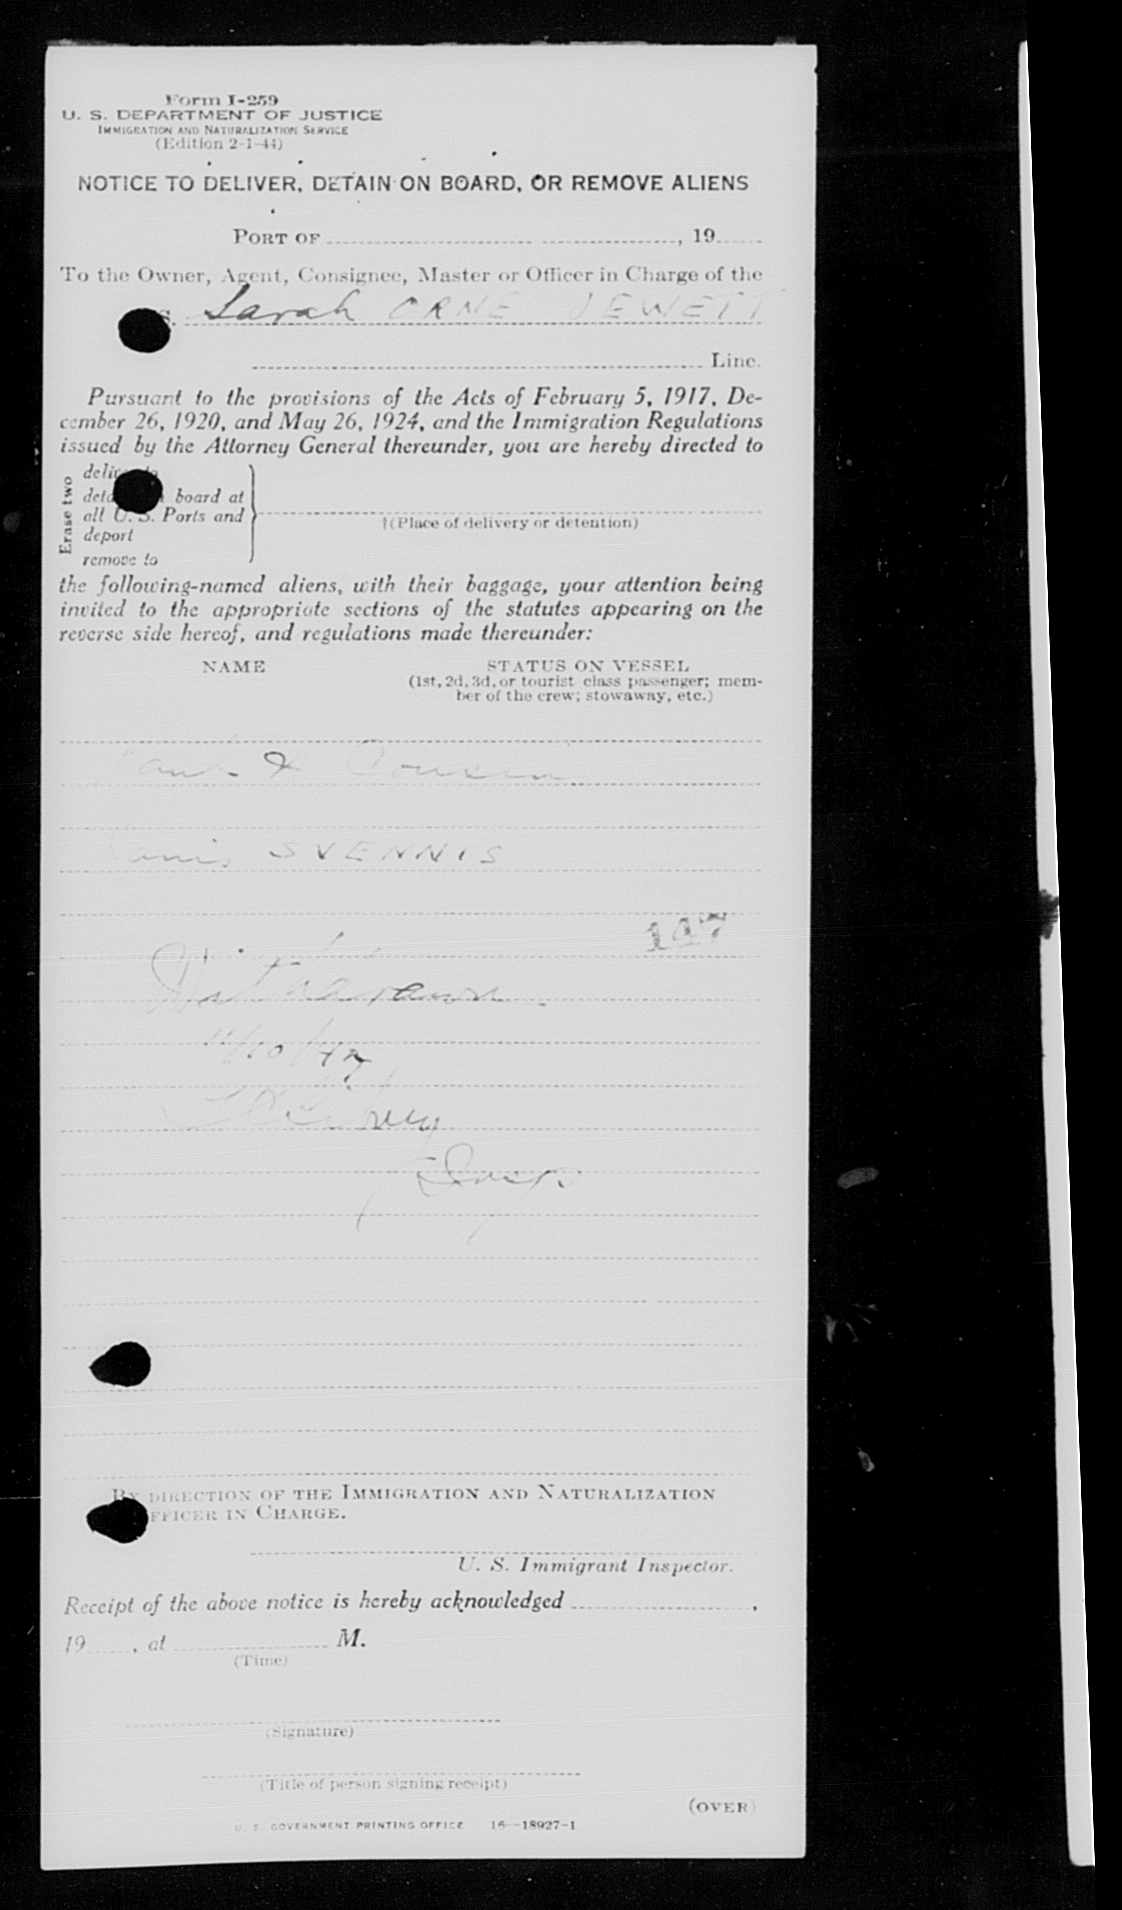 Form I-259
U. S. DEPARTMENT OF JUSTICE
IMMIGRATION AND NATURALIZATION SERVICE
(Edition 2-1-44)
NOTICE TO DELIVER, DETAIN ON BOARD, OR REMOVE ALIENS
PORT OF , 19
To the Owner, Agent, Consignee, Master or Officer in Charge of the
S. Sarah ORNE JEWETT
Line.
Pursuant to the provisions of the Acts of February 5, 1917, De-
cember 26, 1920, and May 26, 1924, and the Immigration Regulations
issued by the Attorney General thereunder, you are hereby directed to
Erase two
board at
all U. S. Ports and
deport
remove to
†(Place of delivery or detention)
the following-named aliens, with their baggage, your attention being
invited to the appropriate sections of the statutes appearing on the
reverse side hereof, and regulations made thereunder:
NAME STATUS ON VESSEL
(1st, 2d, 3d, or tourist class passenger; mem-
ber of the crew; stowaway, etc.)
&
SVENNIS
147
Withdrawn
11/10/47
Insp.
BY DIRECTION OF THE IMMIGRATION AND NATURALIZATION
OFFICER IN CHARGE.
U. S. Immigrant Inspector.
Receipt of the above notice is hereby acknowledged ,
19 , at M.
(Time)
(Signature)
(Title of person signing receipt)
(OVER)
U. S. GOVERNMENT PRINTING OFFICE 16—18927-1